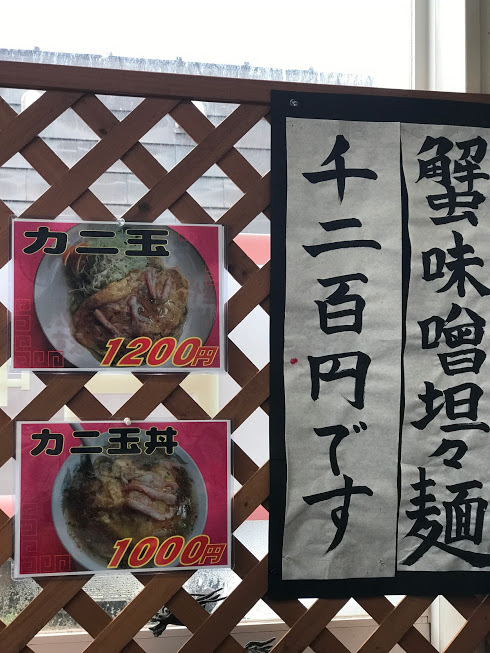 カニ玉
1200円
カニ玉丼
1000円
蟹味噌坦々麺
千二百円です